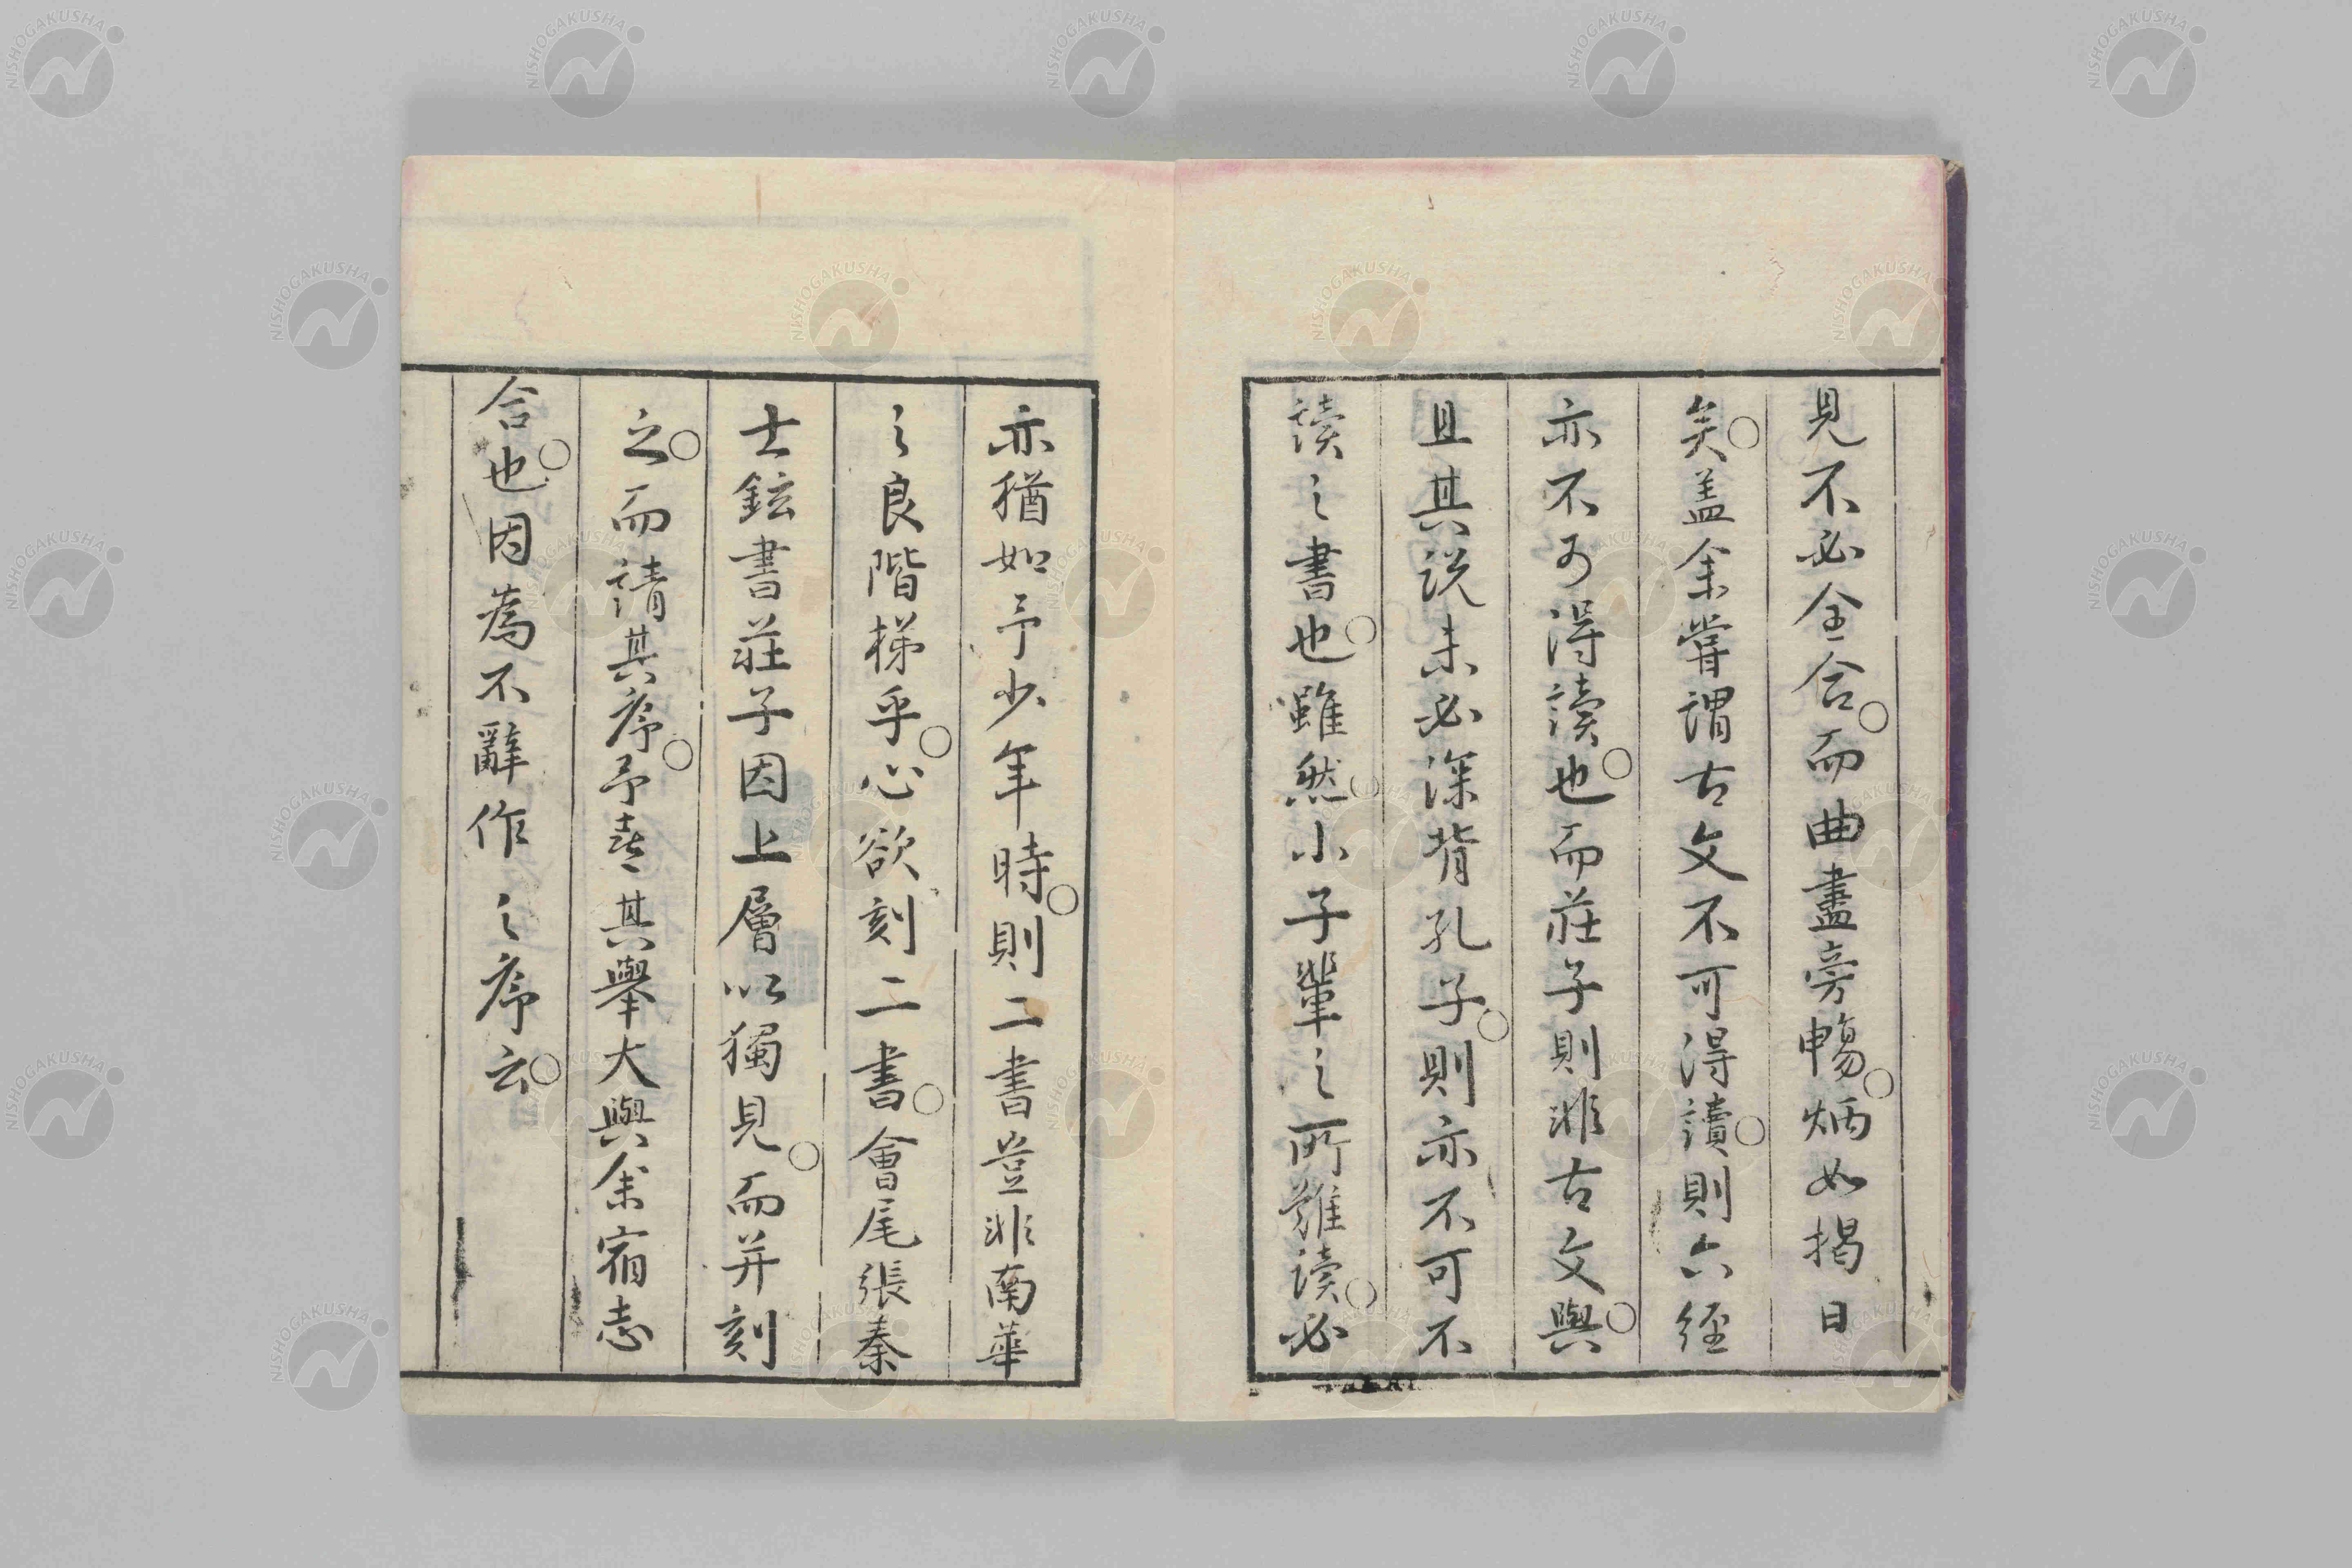 見不必全合○而曲盡旁暢○炳如揭日
矣○盖余嘗謂古文不可得讀○則六經
亦不可得讀也○而莊子則非古文與○
且其説未必深背孔子○則亦不可不
讀之書也○雖然○小子輩之所難讀○必
亦猶如予少年時○則二書豈非南華
之良階梯乎○心欲刻二書○會尾張秦
士鉉書莊子因上層以獨見○而并刻
之○而請其序○予喜其舉大與余宿志
合也○因為不辭作之序云○
NISHOGAKUSHA